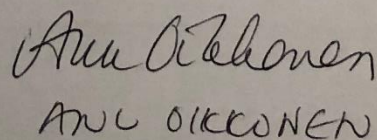 Anu Oikkonen
ANU OIKKONEN